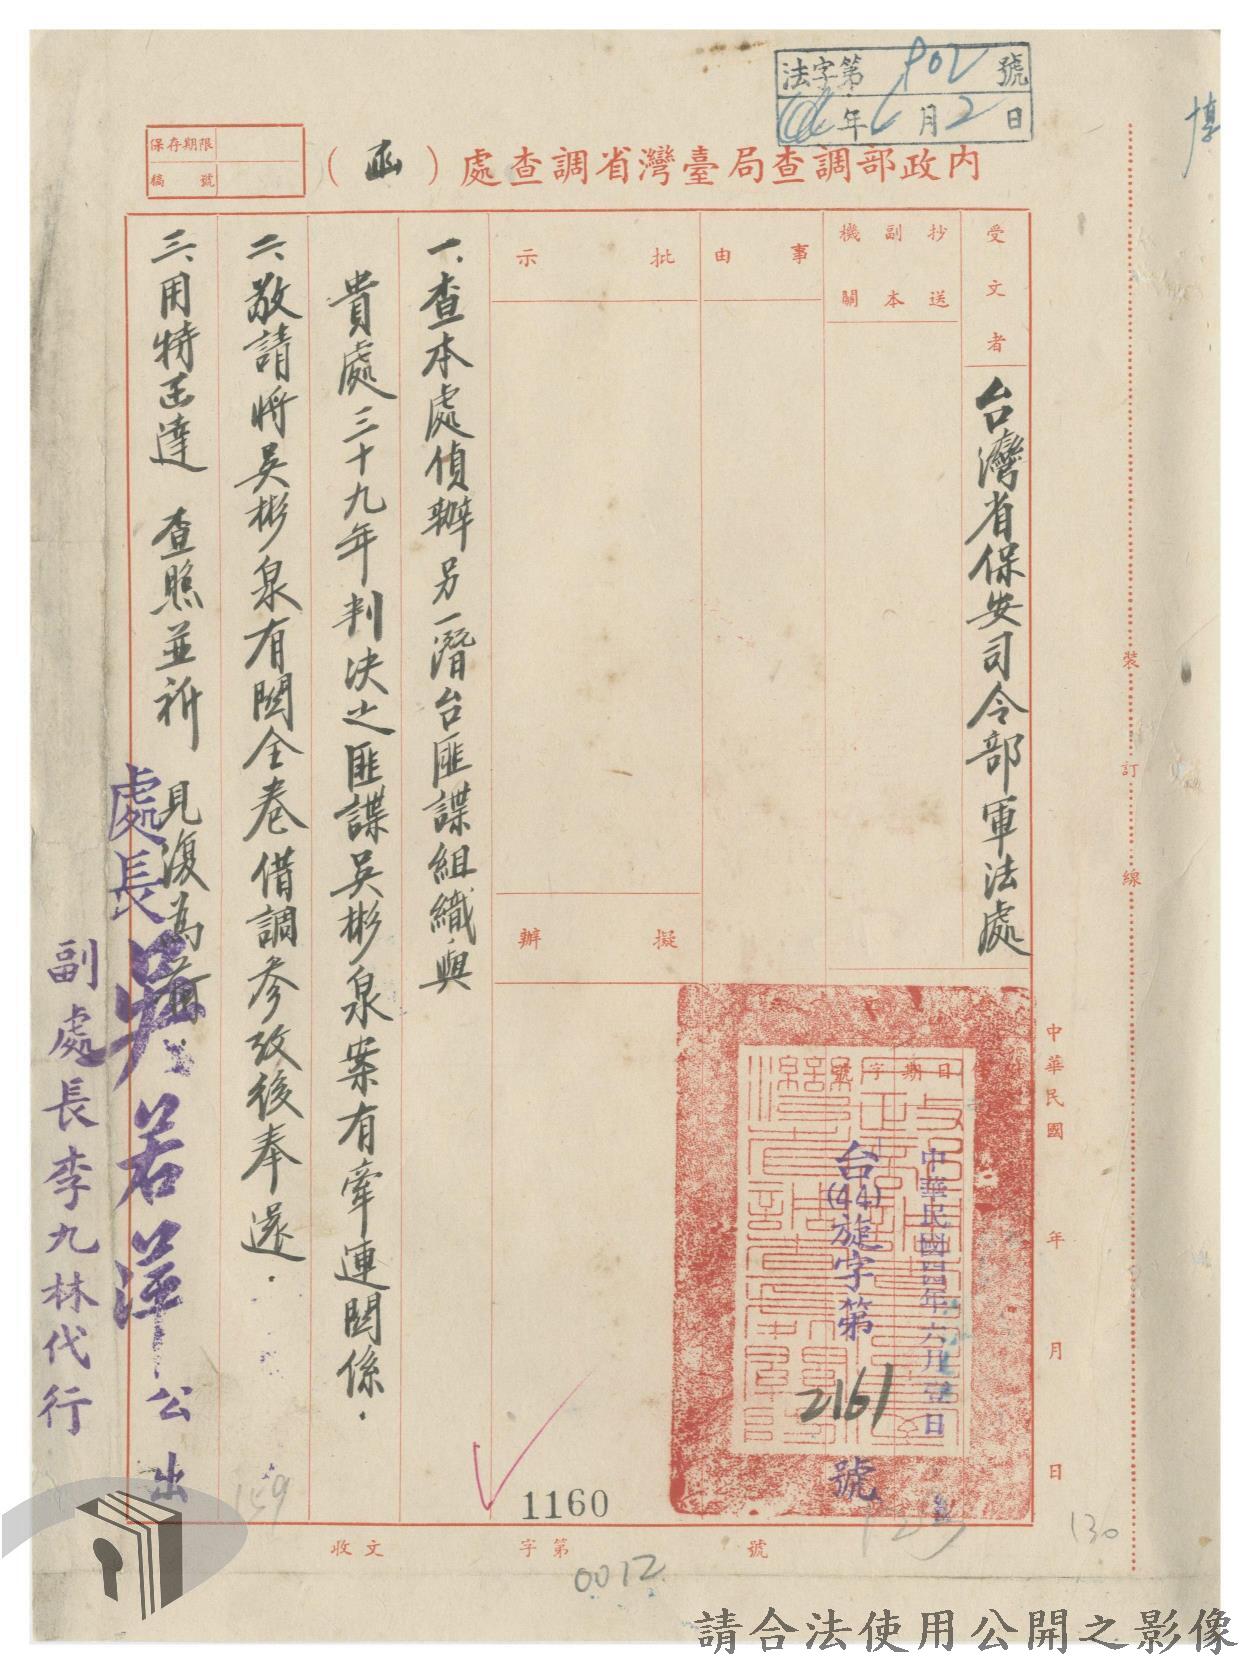 法字第902號
44年6月2日
保存期限
稿號
內政部調查局臺灣省調查處(函)
受文者
台灣省保安司令部軍法處
抄送副本機關
事由
批示
擬辦
中華民國 年 月 日
中華民國四四年六月壹日
台(44)旋字第2161號
一、查本處偵辦另一潛台匪諜組織與
貴處三十九年判決之匪諜吳彬泉案有牽連関係.
二、敬請將吳彬泉有関全卷借調參攷後奉還.
三、用特函達 查照並祈 見復為荷
處長吳若萍公出
副處長李九林代行
裝訂線
1160
收文 字第 號
0012
159
123
130
請合法使用公開之影像